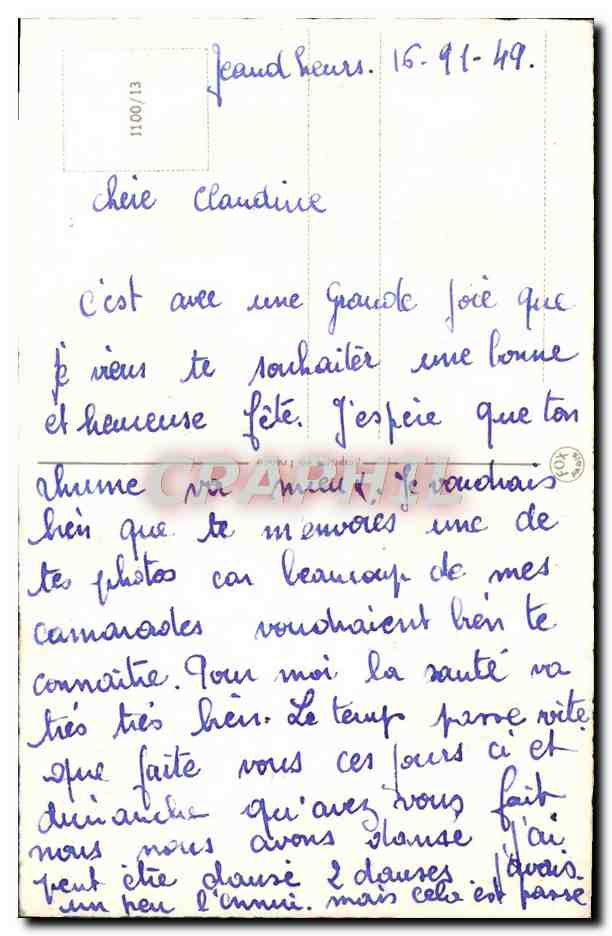 Jeand'heurs. 16-91-49.
1100/13
Chère Claudine
C'est avec une Grande joie que
je viens te souhaiter une bonne
et heureuse fête. J'espère que ton
rhume va mieux. Je voudrais
bien que te m'envoies une de
tes photos car beaucoup de mes
camarades voudraient bien te
connaître. Pour moi la santé va
très très bien. Le temps passe vite
que faite vous ces jours ci et
dimanche qu'avez vous fait
nous nous avons dansé j'ai
peut être dansé 2 danses. j'avais
un peu l'ennui. mais cela est passé
CRAPHIL
FOX